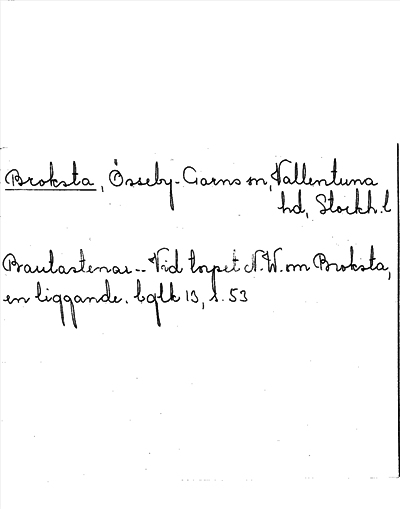 Broksta, Össeby-Garns sn, Vallentuna
hd, Stockh.l
Bautastenar.- Vid torpet N.W. om Broksta,
en liggande. bglk 13, s. 53